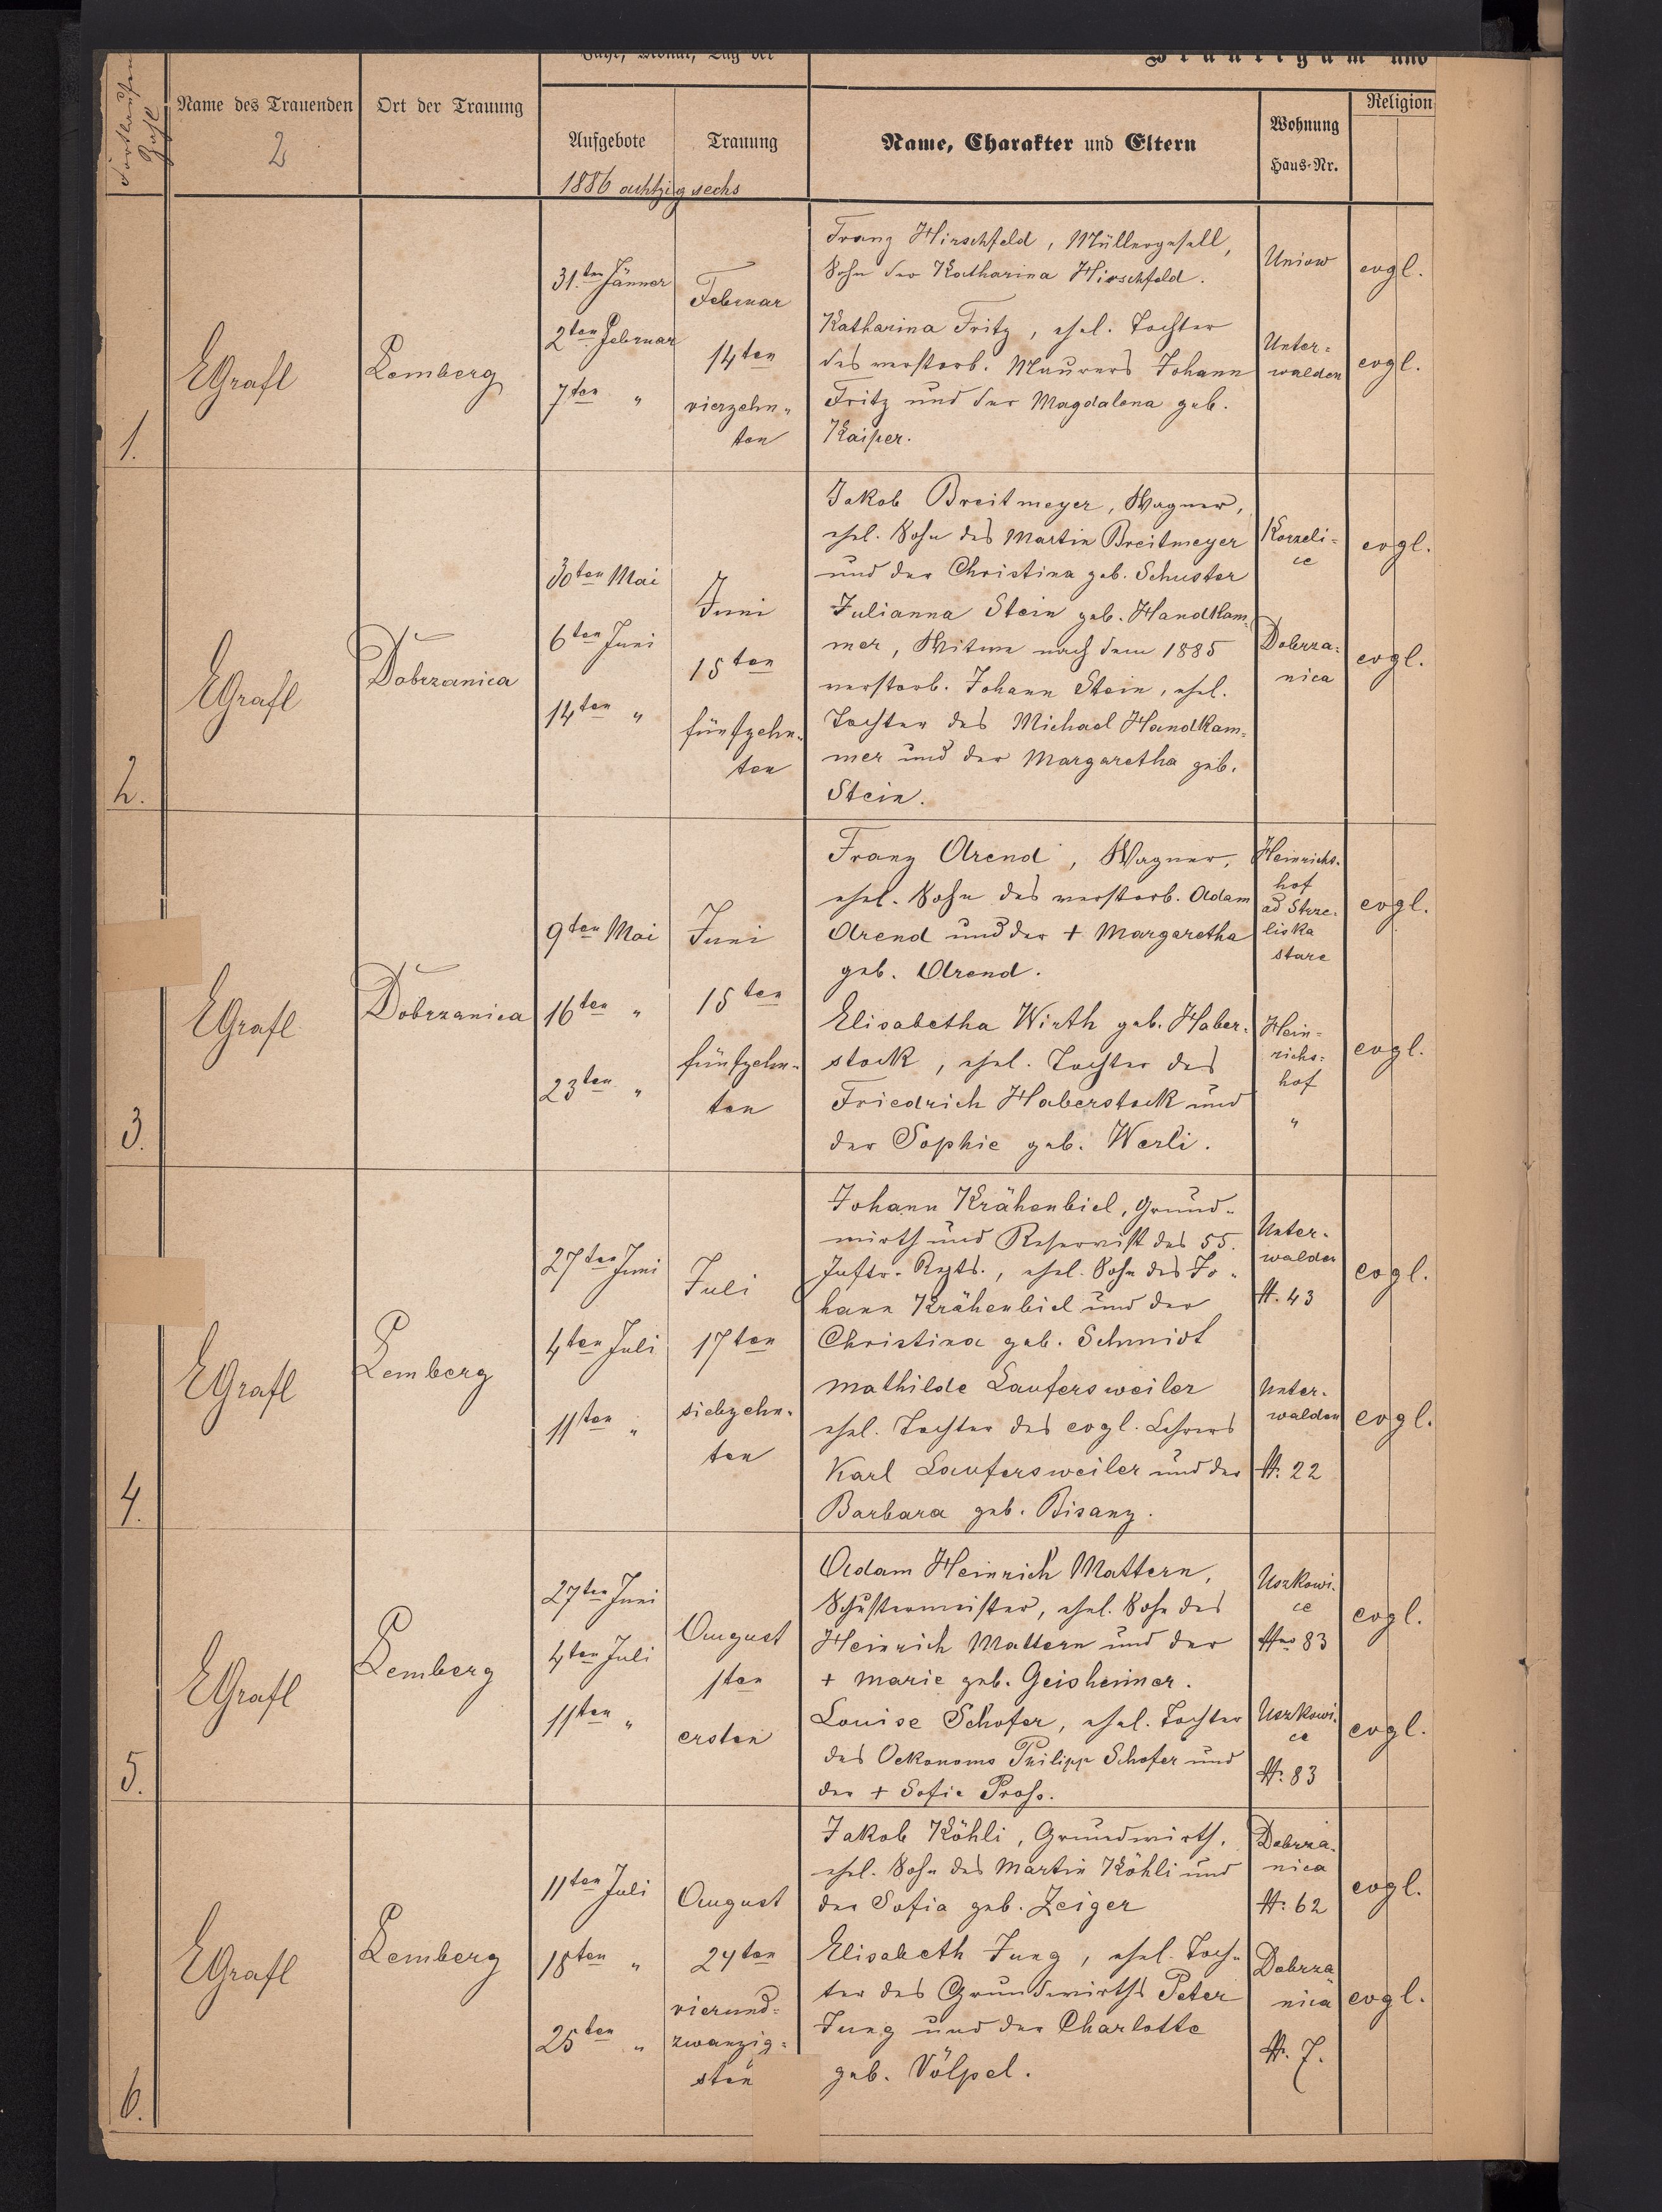 Jahr, Monat, Tag der
Bräutigam und
Fortlaufende Zahl
Name des Trauenden
2
Ort der Trauung
Aufgebote
Trauung
Name, Charakter und Eltern
Wohnung
Haus-Nr.
Religion
1886 achtzig sechs
1.
EGrafl
Lemberg
31.ten Jänner
2ten Februar
7ten "
Februar
14ten
vierzehn-
ten
Franz Hirschfeld, Müllergesell,
Sohn der Katharina Hirschfeld.
Uniow
evgl.
Katharina Fritz, ehel. Tochter
des verstorb. Maurers Johann
Fritz und der Magdalena geb.
Kaiper.
Unter-
walden
evgl.
2.
EGrafl
Dobrzanica
30ten Mai
6ten Juni
14ten "
Juni
15ten
fünfzehn-
ten
Jakob Breitmeyer, Wagner,
ehel. Sohn des Martin Breitmeyer
und der Christina geb. Schuster
Korzeli-
ce
evgl.
Julianna Stein geb. Handkam-
mer, Witwe nach dem 1885
verstorb. Johann Stein, ehel.
Tochter des Michael Handkam-
mer und der Margaretha geb.
Stein.
Dobrza-
nica
evgl.
3.
EGrafl
Dobrzanica
9ten Mai
16ten "
23ten "
Juni
15ten
fünfzehn-
ten
Franz Arend, Wagner,
ehel. Sohn des verstorb. Adam
Arend und der + Margaretha
geb. Arend.
Heinrichs-
hof
ad Strze-
liska
stare
evgl.
Elisabetha Wirth geb. Haber-
stock, ehel. Tochter des
Friedrich Haberstock und
der Sophie geb. Werli.
Hein-
richs-
hof
"
evgl.
4.
EGrafl
Lemberg
27ten Juni
4ten Juli
11ten "
Juli
17ten
siebzehn-
ten
Johann Krähenbiel, Grund-
wirth und Reservist des 55.
Inftr. Regts., ehel. Sohn des Jo-
hann Krähenbiel und der
Christina geb. Schmidt
Unter-
walden
N. 43
evgl.
Mathilde Laufersweiler
ehel. Tochter des evgl. Lehrers
Karl Laufersweiler und der
Barbara geb. Bisanz.
Unter-
walden
N. 22
evgl.
5.
EGrafl
Lemberg
27ten Juni
4ten Juli
11ten "
August
1ten
ersten
Adam Heinrich Mattern,
Schustermeister, ehel. Sohn des
Heinrich Mattern und der
+ Marie geb. Geisheimer.
Uszkowi-
ce
Nro 83
evgl.
Louise Schofer, ehel. Tochter
des Oekonoms Philipp Schofer und
der + Sofie Proß.
Uszkowi-
ce
N. 83
evgl.
6.
EGrafl
Lemberg
11ten Juli
18ten "
25ten "
August
24ten
vierund-
zwanzig-
sten
Jakob Köhli, Grundwirth,
ehel. Sohn des Martin Köhli und
der Sofia geb. Zeiger
Dobrza-
nica
N. 62
evgl.
Elisabeth Jung, ehel. Toch-
ter des Grundwirths Peter
Jung und der Charlotte
geb. Völpel.
Dobrza
nica
N. 7.
evgl.